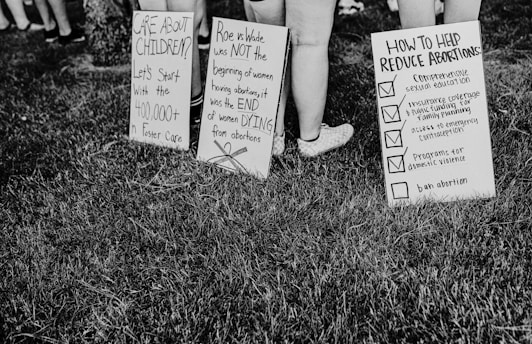 CARE ABOUT
CHILDREN?
Let's Start
with the
400,000+
n Foster Care
Roe v. Wade
was NOT the
beginning of women
having abortions, it
was the END
of women DYING
from abortions
HOW TO HELP
REDUCE ABORTIONS:
Comprehensive
sexual education
insurance coverage
& public funding for
family planning
access to emergency
contraception
Programs for
domestic violence
ban abortion